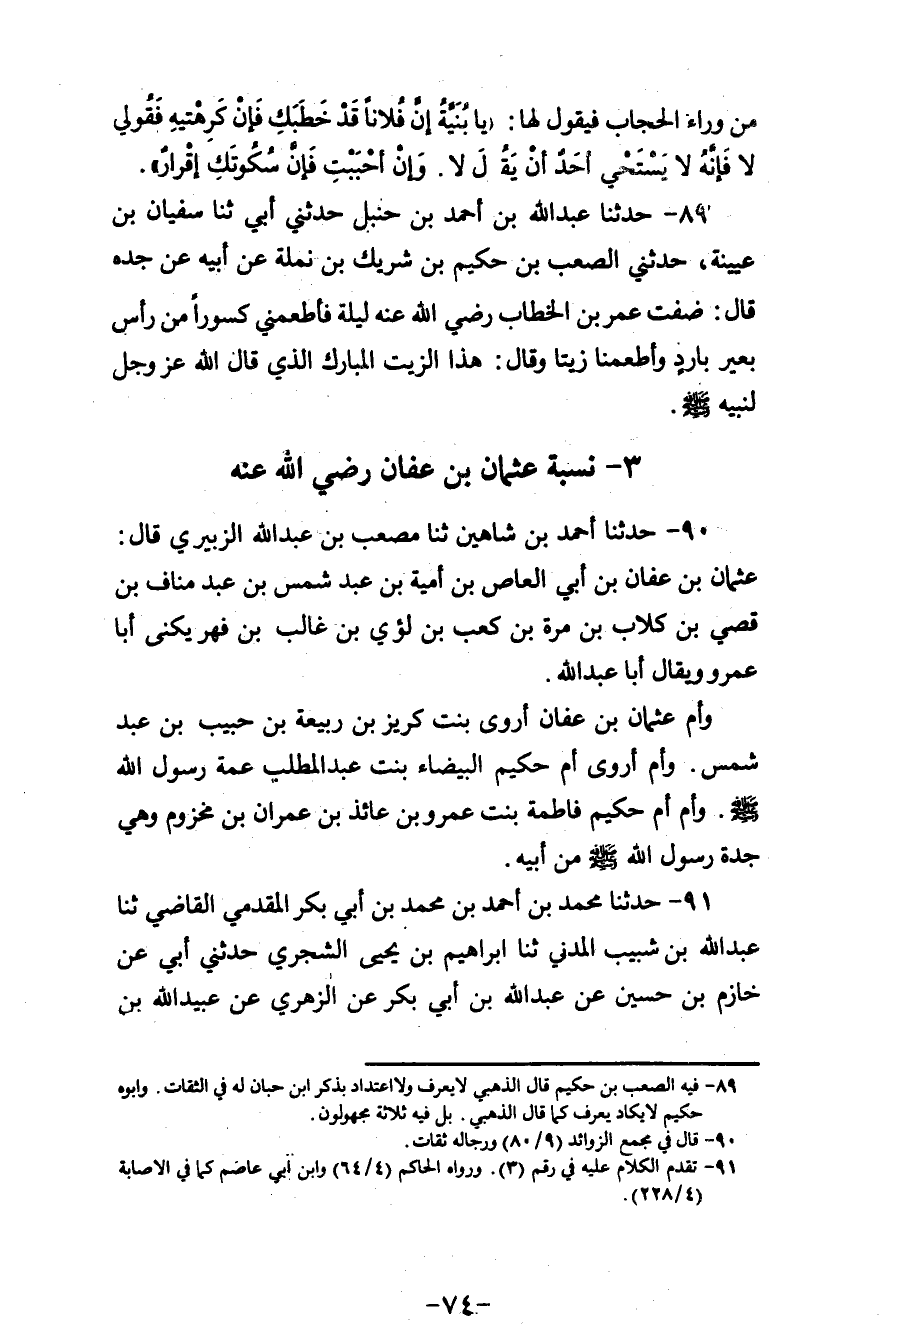 من وراء الحجاب فيقول لها: «يا بُنَيَّةُ إنَّ فُلاناً قَدْ خَطَبَكِ فَإنْ كَرِهْتيهِ فَقُولي
لا فَإنَّهُ لا يَسْتَحْي أحَدٌ أنْ يَقُولَ لا. وَإنْ أحْبَبْتِ فَإنَّ سُكُوتَكِ إقْرارٌ».
٨٩- حدثنا عبدالله بن أحمد بن حنبل حدثني أبي ثنا سفيان بن
عيينة، حدثني الصعب بن حكيم بن شريك بن نملة عن أبيه عن جده
قال: ضفت عمر بن الخطاب رضي الله عنه ليلة فأطعمني كسوراً من رأس
بعير باردٍ وأطعمنا زيتا وقال: هذا الزيت المبارك الذي قال الله عز وجل
لنبيه ﷺ.
٣- نسبة عثمان بن عفان رضي الله عنه
٩٠- حدثنا أحمد بن شاهين ثنا مصعب بن عبدالله الزبيري قال:
عثمان بن عفان بن أبي العاص بن أمية بن عبد شمس بن عبد مناف بن
قصي بن كلاب بن مرة بن كعب بن لؤي بن غالب بن فهر يكنى أبا
عمرو ويقال أبا عبدالله.
وأم عثمان بن عفان أروى بنت كريز بن ربيعة بن حبيب بن عبد
شمس. وأم أروى أم حكيم البيضاء بنت عبدالمطلب عمة رسول الله
ﷺ. وأم أم حكيم فاطمة بنت عمرو بن عائذ بن عمران بن مخزوم وهي
جدة رسول الله ﷺ من أبيه.
٩١- حدثنا محمد بن أحمد بن محمد بن أبي بكر المقدمي القاضي ثنا
عبدالله بن شبيب المدني ثنا ابراهيم بن يحيى الشجري حدثني أبي عن
خازم بن حسين عن عبدالله بن أبي بكر عن الزهري عن عبيدالله بن
٨٩- فيه الصعب بن حكيم قال الذهبي لايعرف ولااعتداد بذكر ابن حبان له في الثقات. وابوه
حكيم لايكاد يعرف كما قال الذهبي. بل فيه ثلاثة مجهولون.
٩٠- قال في مجمع الزوائد (٨٠/٩) ورجاله ثقات.
٩١- تقدم الكلام عليه في رقم (٣). ورواه الحاكم (٦٤/٤) وابن أبي عاصم كما في الاصابة
(٢٢٨/٤).
-٧٤-